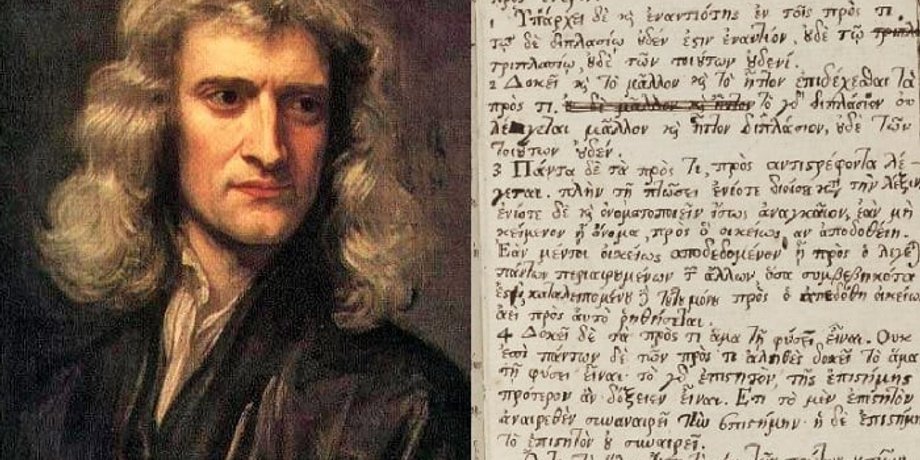 1 Ὑπάρχει δὲ κ̀ ἐναντιότης ἐν τοῖς πρὸς τι
τῷ δὲ διπλασίῳ ȣ̓δέν ἐςιν ἐναντίον, ȣ̓δὲ τῷ
τριπλασίῳ, ȣ̓δὲ τῶν τοιȣ́των ȣ̓δενί.
2 Δοκεῖ κ̀ τὸ μᾶλλον κ̀ τὸ ἧτ̔τον ἐπιδέχεσθαι τὰ
πρὸς τι. τὸ γδ̀ διπλάσιον ȣ̓
λέγεται μᾶλλον κ̀ ἧττον διπλάσιον, ȣ̓δὲ τῶν
τοιȣ́των ȣ̓δέν.
3 Πάντα δὲ τὰ πρὸς τι, πρὸς ἀντιςρέφοντα λέ-
γεται. πλὴν τῇ πτώσει ἐνίοτε διοίσει κτ̀ τὴν λέξιν
ἐνίοτε δὲ κ̀ ὀνοματοποιεῖν ἴσως ἀναγκαῖον, ἐὰν μὴ
κείμενον ᾖ ὄνομα, πρὸς ὃ οἰκείως ἂν ἀποδοθείη.
Ἐὰν μέντοι οἰκείως ἀποδεδομένον ᾖ πρὸς ὃ λέγε
πάντων περιαιρεμένων τ̃ ἄλλων ὅσα συμβεβηκότα
καταλειπομένȣ τȣ́τȣ μόνȣ πρὸς ὃ ἀπεδόθη οἰκείω
ἀεὶ πρὸς αὐτὸ ῥηθήσεται.
4 Δοκεῖ δὲ τὰ πρὸς τι ἅμα τῇ φύσει εἶναι. Οὐκ
ἐπὶ πάντων δὲ τῶν πρὸς τι ἀληθὲς δοκεῖ τὸ ἅμα
τῇ φύσει εἶναι. τὸ γδ̀ ἐπιςητὸν, τῆς ἐπιςήμης
πρότερον ἂν δόξειεν εἶναι. Ἔτι τὸ μὲν ἐπιςητὸν
ἀναιρεθὲν συναναιρεῖ τὴν ἐπιςήμην· ἡ δὲ ἐπιςήμ
τὸ ἐπιςητὸν ȣ̓ συναιρεῖ.